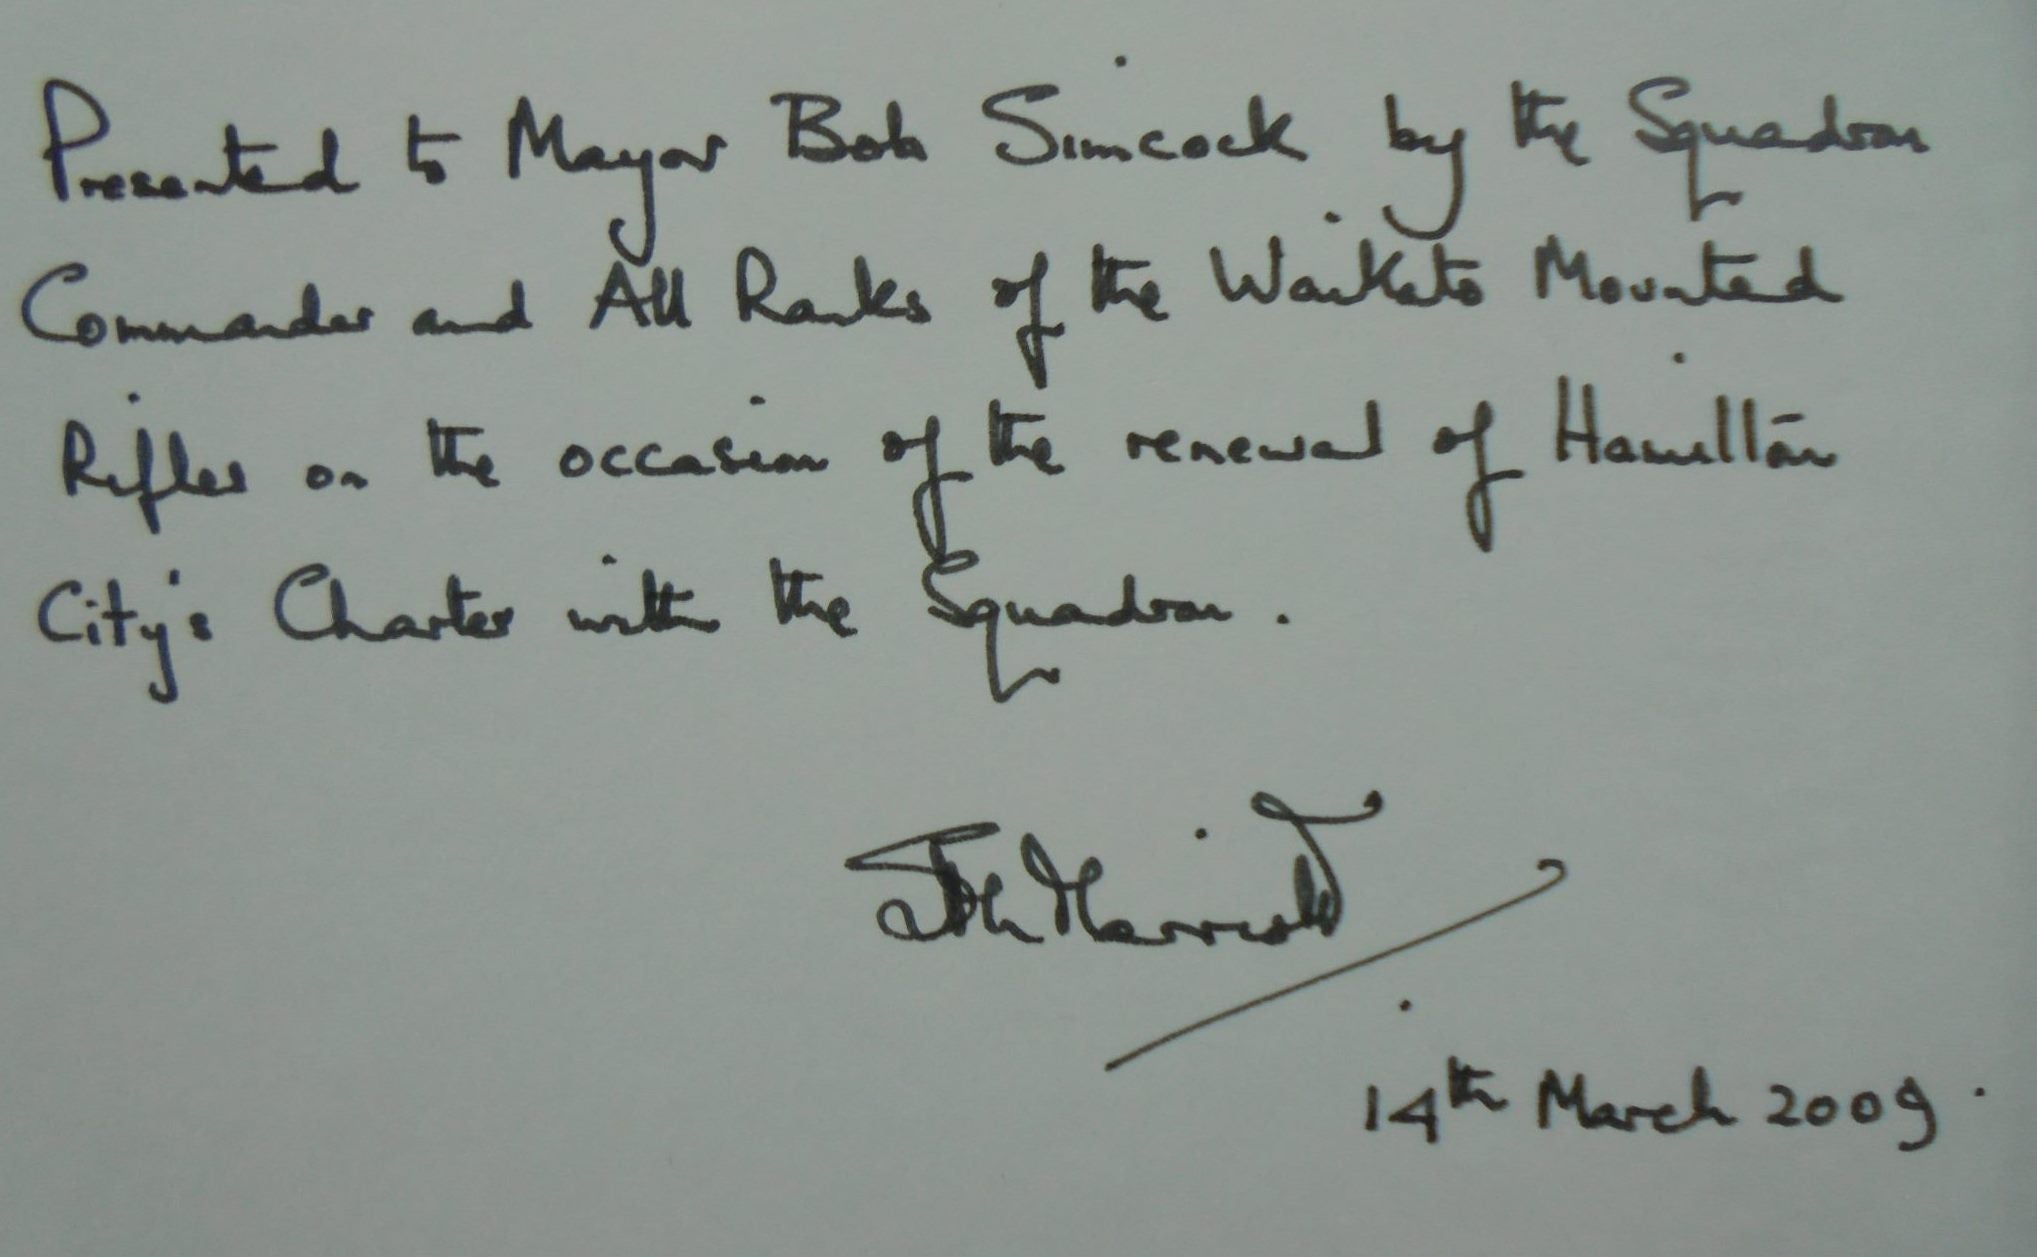 Presented to Mayor Bob Simcock by the Squadron
Commander and All Ranks of the Waikato Mounted
Rifles on the occasion of the renewal of Hamilton
City's Charter with the Squadron.
14th March 2009.